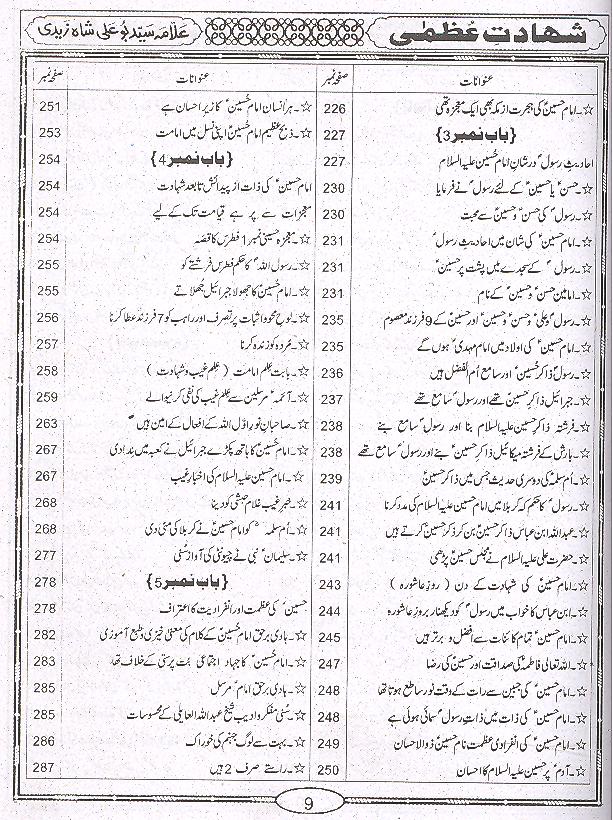 شھادتِ عُظمٰی
علامہ سید بو علی شاہ زیدی
عنوانات صفحہ نمبر
☆۔امام حسینؑ کی ہجرت از مکہ بھی ایک معجزہ تھی 226
{باب نمبر 3} 227
احادیثِ رسولؐ در شانِ امام حُسین علیہ السلام 227
☆۔حسنؑ یا حسینؑ کے لئے رسولؐ نے فرمایا 230
☆۔رسولؐ کی حسنؑ و حسینؑ سے محبت 230
☆۔امام حسینؑ کی شان میں احادیثِ رسولؐ 231
☆۔رسولؐ کے سجدے میں پشت پر حسینؑ 231
☆۔امامین حسنؑ و حسینؑ کے نام 231
☆۔رسولؐ و علیؑ و حسنؑ و حسینؑ اور حسینؑ کے 9 فرزند معصوم 235
☆۔امام حسینؑ کی اولاد میں امام مہدیؑ ہوں گے 235
☆۔رسولؐ ذاکرِ حسینؑ اور سامع اُم الفضل ہیں 236
☆۔جبرائیل ذاکرِ حسینؑ تھے اور رسولؐ سامع تھے 237
☆۔فرشتہ ذاکرِ حسین علیہ السلام بنا اور رسولؐ سامع بنے 238
☆۔بارش کے فرشتہ میکائیل ذاکرِ حسینؑ بنے اور رسولؐ سامع تھے 238
☆۔اُم سلمہؓ کی دوسری حدیث جس میں ذاکر حسینؑ 239
☆۔رسولؐ کا حکم کہ کربلا میں امام حسین علیہ السلام کی مدد کرنا 241
☆۔عبداللہ ابن عباس ذاکرِ حسینؑ بن کر ذکرِ حسینؑ کرتے ہیں 241
☆۔حضرت علی علیہ السلام نے مجلسِ حسینؑ پڑھی 241
☆۔امام حسینؑ کی شہادت کے دن (روزِ عاشورہ) 243
☆۔ابن عباس کا خواب میں رسولؐ کو دیکھنا بروزِ عاشورہ 244
☆۔امام حسینؑ تمام کائنات سے افضل و برتر ہیں 245
☆۔اللہ تعالی فاطمہؑ کی صداقت اور حسینؑ کی رضا 247
☆۔امام حسینؑ کی جبین سے رات کے وقت نور ساطع ہوتا تھا 248
☆۔امام حسینؑ کی ذات میں ذاتِ رسولؐ سمائی ہوئی ہے 248
☆۔امام حسینؑ کی انفرادی عظمت نام حسینؑ ذوالاحسان 249
☆۔آدمؑ پر حسین علیہ السلام کا احسان 250
عنوانات صفحہ نمبر
☆۔ہر انسان امام حُسینؑ کا زیرِ احسان ہے 251
☆۔ذبحِ عظیم امام حُسینؑ اپنی نسل میں امامت 253
{باب نمبر 4} 254
امام حسینؑ کی ذات از پیدائش تا بعد شہادت 254
معجزات سے پر ہے قیامت تک کے لیے
☆۔معجزہ حسینیؑ نمبر 1 فطرس کا قصہ 254
☆۔رسول اللہؐ کا حکم فطرس فرشتے کو 255
☆۔امام حُسینؑ کا جھولا جبرائیل جھلاتے 255
☆۔لوحِ محو و اثبات پر تصرف اور راہب کو 7 فرزند عطا کرنا 256
☆۔مُردہ کو زندہ کرنا 257
☆۔بابت علمِ امامت (علم غیب و شہادت) 258
☆۔آئمہؑ مرسلین سے علمِ غیب کی نفی کرنیوالے 259
☆۔صاحبانِ نورِ اوّل اللہ کے افعال کے امین ہیں 263
☆۔امام حُسینؑ کا ہاتھ پکڑے جبرائیل نے کعبہ میں ندا دی 267
☆۔امام حسین علیہ السلام کی اخبارِ غیب 267
☆۔خبرِ غیب غلام حبشی کو دینا 268
☆۔اُم سلمہؓ کو امام حسینؑ نے کربلا کی مٹی دی 268
☆۔سلیمانؑ نبی نے چیونٹی کی آواز سُنی 277
{باب نمبر 5} 278
حسینؑ کی عظمت اور انفرادیت کا اعتراف 278
☆۔ہادی برحق امام حُسینؑ کے کلام کی معنی خیزی و طمع آموزی 282
☆۔امام حُسینؑ کا جہاد اجتماعی بت پرستی کے خلاف تھا 283
☆۔ہادی برحق امامؑ مرسل 285
☆۔سُنی مفکر و ادیب شیخ عبداللہ العلایلی کے محسوسات 285
☆۔بہت سے لوگ جہنم کی خوراک 286
☆۔راستے صرف 2 ہیں 287
9